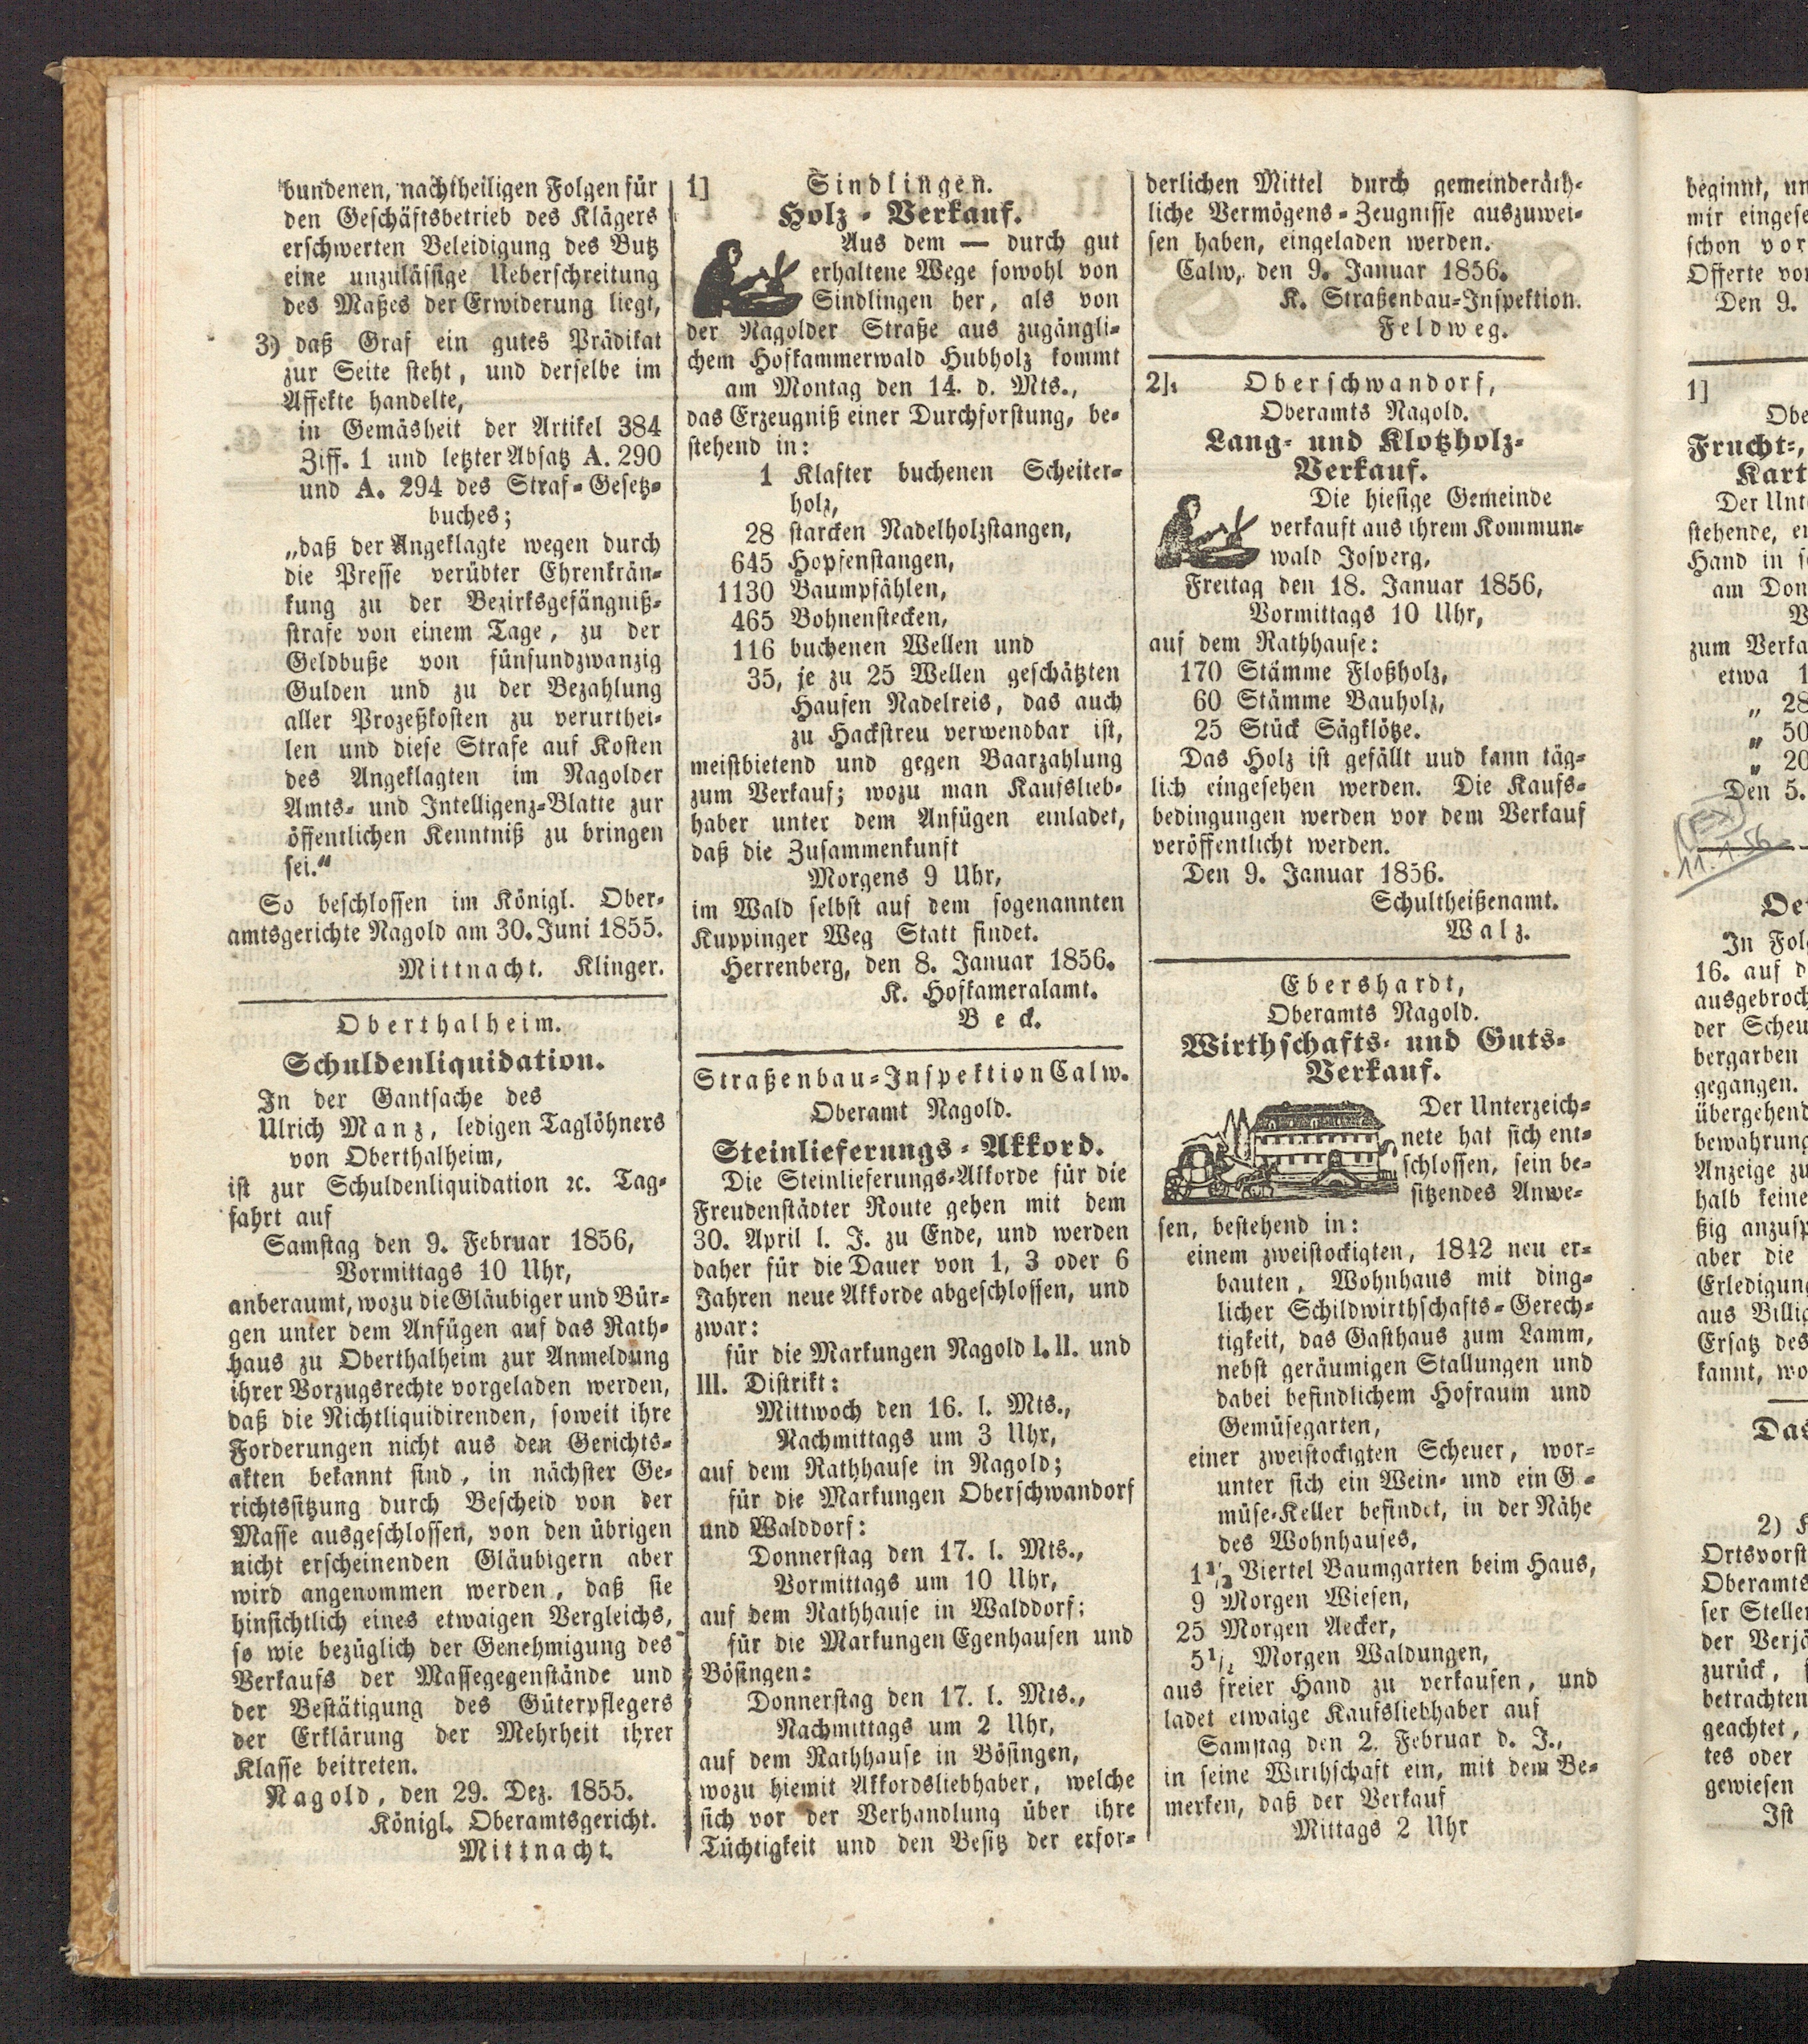 bundenen, nachtheiligen Folgen für
den Geschäftsbetrieb des Klägers
erschwerten Beleidigung des Butz
eine unzulässige Ueberschreitung
des Maßes der Erwiderung liegt,
3) daß Graf ein gutes Prädikat
zur Seite steht, und derselbe im
Affekte handelte,
in Gemäsheit der Artikel 384
Ziff. 1 und letzter Absatz A. 290
und A. 294 des Straf-Gesetz-
buches;
„daß der Angeklagte wegen durch
die Presse verübter Ehrenkrän-
kung zu der Bezirksgefängniß-
strafe von einem Tage, zu der
Geldbuße von fünfundzwanzig
Gulden und zu der Bezahlung
aller Prozeßkosten zu verurthei-
len und diese Strafe auf Kosten
des Angeklagten im Nagolder
Amts- und Intelligenz-Blatte zur
öffentlichen Kenntniß zu bringen
sei.“
So beschlossen im Königl. Ober-
amtsgerichte Nagold am 30. Juni 1855.
Mittnacht. Klinger.
Oberthalheim.
Schuldenliquidation.
In der Gantsache des
Ulrich Manz, ledigen Taglöhners
von Oberthalheim,
ist zur Schuldenliquidation ꝛc. Tag-
fahrt auf
Samstag den 9. Februar 1856,
Vormittags 10 Uhr,
anberaumt, wozu die Gläubiger und Bür-
gen unter dem Anfügen auf das Rath-
haus zu Oberthalheim zur Anmeldung
ihrer Vorzugsrechte vorgeladen werden,
daß die Nichtliquidirenden, soweit ihre
Forderungen nicht aus den Gerichts-
akten bekannt sind, in nächster Ge-
richtssitzung durch Bescheid von der
Masse ausgeschlossen, von den übrigen
nicht erscheinenden Gläubigern aber
wird angenommen werden, daß sie
hinsichtlich eines etwaigen Vergleichs,
so wie bezüglich der Genehmigung des
Verkaufs der Massegegenstände und
der Bestätigung des Güterpflegers
der Erklärung der Mehrheit ihrer
Klasse beitreten.
Nagold, den 29. Dez. 1855.
Königl. Oberamtsgericht.
Mittnacht.
1] Sindlingen.
Holz-Verkauf.
Aus dem — durch gut
erhaltene Wege sowohl von
Sindlingen her, als von
der Nagolder Straße aus zugängli-
chem Hofkammerwald Hubholz kommt
am Montag den 14. d. Mts.,
das Erzeugniß einer Durchforstung, be-
stehend in:
1 Klafter buchenen Scheiter-
holz,
28 starcken Nadelholzstangen,
645 Hopfenstangen,
1130 Baumpfählen,
465 Bohnenstecken,
116 buchenen Wellen und
35, je zu 25 Wellen geschätzten
Haufen Nadelreis, das auch
zu Hackstreu verwendbar ist,
meistbietend und gegen Baarzahlung
zum Verkauf; wozu man Kaufslieb-
haber unter dem Anfügen einladet,
daß die Zusammenkunft
Morgens 9 Uhr,
im Wald selbst auf dem sogenannten
Kuppinger Weg Statt findet.
Herrenberg, den 8. Januar 1856.
K. Hofkameralamt.
Beck.
Straßenbau-Inspektion Calw.
Oberamt Nagold.
Steinlieferungs-Akkord.
Die Steinlieferungs-Akkorde für die
Freudenstädter Route gehen mit dem
30. April l. J. zu Ende, und werden
daher für die Dauer von 1, 3 oder 6
Jahren neue Akkorde abgeschlossen, und
zwar:
für die Markungen Nagold I. II. und
III. Distrikt:
Mittwoch den 16. l. Mts.,
Nachmittags um 3 Uhr,
auf dem Rathhause in Nagold;
für die Markungen Oberschwandorf
und Walddorf:
Donnerstag den 17. l. Mts.,
Vormittags um 10 Uhr,
auf dem Rathhause in Walddorf;
für die Markungen Egenhausen und
Bösingen:
Donnerstag den 17. l. Mts.,
Nachmittags um 2 Uhr,
auf dem Rathhause in Bösingen,
wozu hiemit Akkordsliebhaber, welche
sich vor der Verhandlung über ihre
Tüchtigkeit und den Besitz der erfor-
derlichen Mittel durch gemeinderäth-
liche Vermögens-Zeugnisse auszuwei-
sen haben, eingeladen werden.
Calw, den 9. Januar 1856.
K. Straßenbau-Inspektion.
Feldweg.
2]. Oberschwandorf,
Oberamts Nagold.
Lang- und Klotzholz-
Verkauf.
Die hiesige Gemeinde
verkauft aus ihrem Kommun-
wald Josperg,
Freitag den 18. Januar 1856,
Vormittags 10 Uhr,
auf dem Rathhause:
170 Stämme Floßholz,
60 Stämme Bauholz,
25 Stück Sägklötze.
Das Holz ist gefällt uud kann täg-
lich eingesehen werden. Die Kaufs-
bedingungen werden vor dem Verkauf
veröffentlicht werden.
Den 9. Januar 1856.
Schultheißenamt.
Walz.
Ebershardt,
Oberamts Nagold.
Wirthschafts- und Guts-
Verkauf.
Der Unterzeich-
nete hat sich ent-
schlossen, sein be-
sitzendes Anwe-
sen, bestehend in:
einem zweistockigten, 1842 neu er-
bauten, Wohnhaus mit ding-
licher Schildwirthschafts-Gerech-
tigkeit, das Gasthaus zum Lamm,
nebst geräumigen Stallungen und
dabei befindlichem Hofraum und
Gemüsegarten,
einer zweistockigten Scheuer, wor-
unter sich ein Wein- und ein G-
müse-Keller befindet, in der Nähe
des Wohnhauses,
1 1/2 Viertel Baumgarten beim Haus,
9 Morgen Wiesen,
25 Morgen Aecker,
5 1/2 Morgen Waldungen,
aus freier Hand zu verkaufen, und
ladet etwaige Kaufsliebhaber auf
Samstag den 2. Februar d. J.,
in seine Wirthschaft ein, mit dem Be-
merken, daß der Verkauf
Mittags 2 Uhr
beginnt,
mir
schon vor
Offerte
Den 9.
1]
Frucht-,
Der
stehende,
Hand in
am
zum
etwa 1
„ 28
„ 50
„ 20
Den 5.
11.1.56
In
16. auf
der
gegangen.
Anzeige zu
halb
aber die
Erledigung
aus
Ersatz des
kannt,
Das
2)
Oberamts
zurück,
betrachten
geachtet,
tes oder
gewiesen
Ist